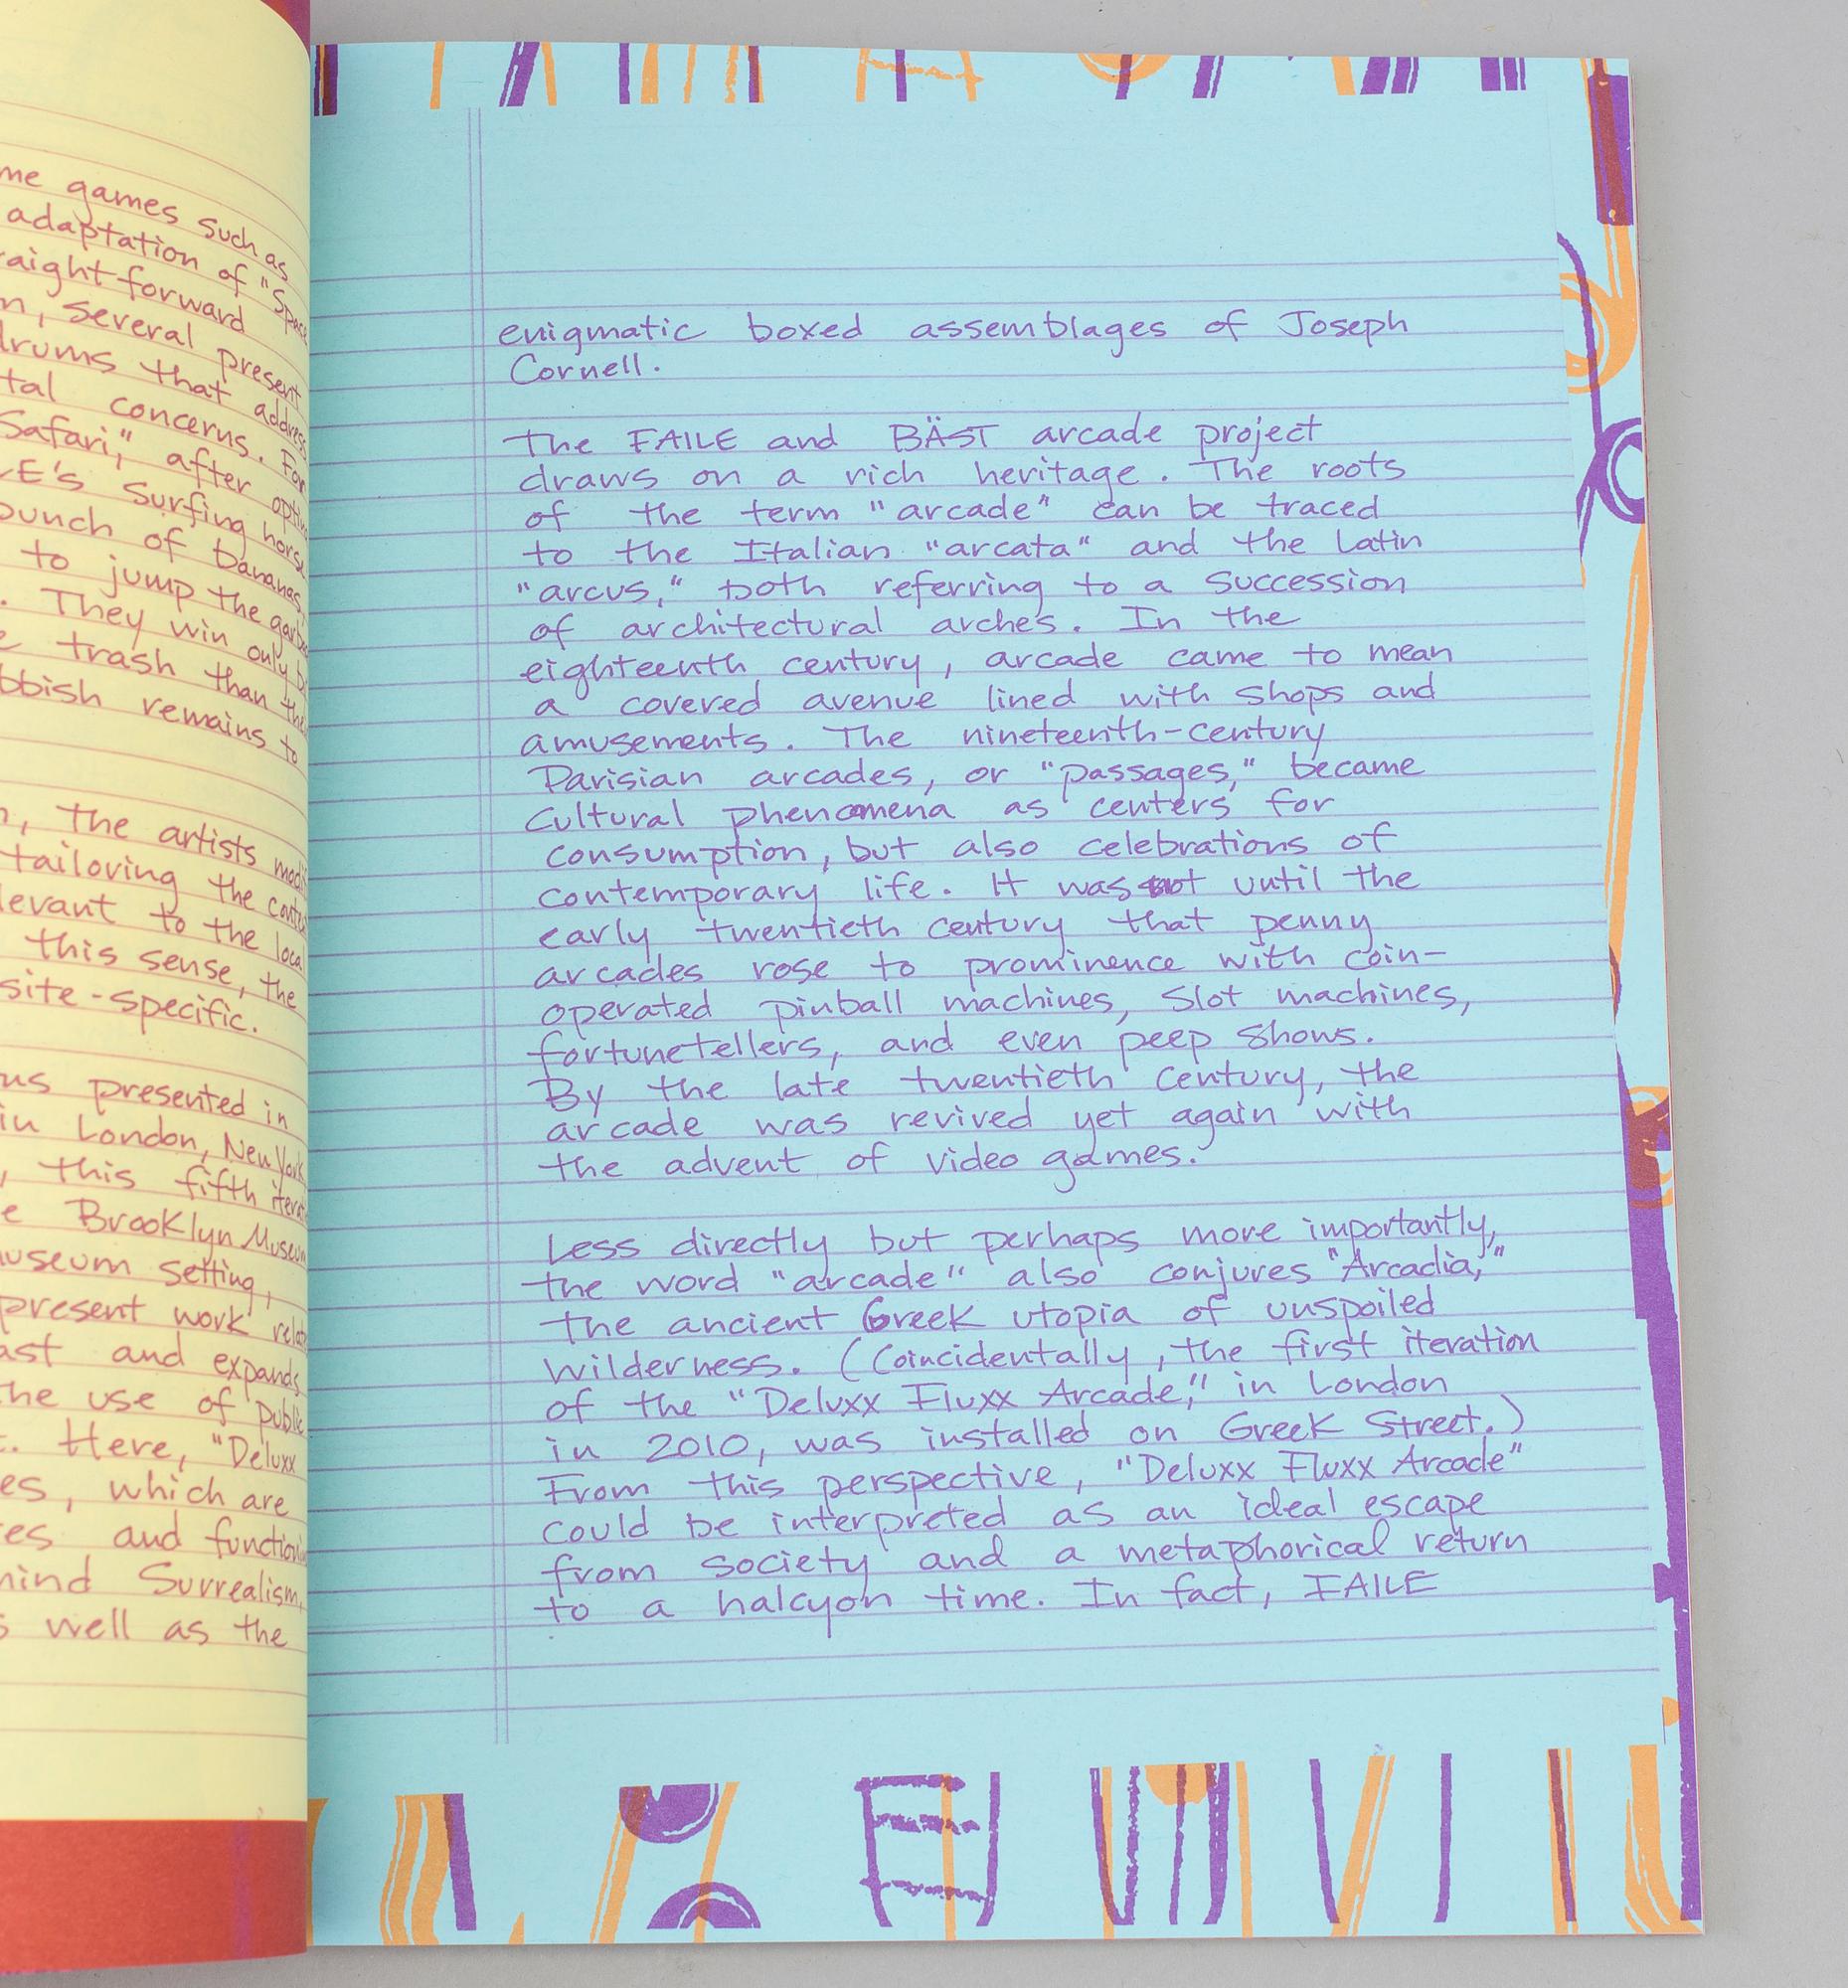 me games such as
adaptation of "Space
raightforward
n, several present
drums that address
tal concerns. For
Safari," after
E's surfing horse
bunch of bananas,
to jump the
. They win only
e trash than the
bbish remains to
n, the artists
tailoring the
levant to the local
this sense, the
site-specific.
us presented in
in London, New York
, this fifth
e Brooklyn Museum
useum setting,
present work
ast and expands
the use of public
. Here, "Deluxx
es, which are
es and
mind Surrealism,
s well as the
enigmatic boxed assemblages of Joseph
Cornell.
The FAILE and BÄST arcade project
draws on a rich heritage. The roots
of the term "arcade" can be traced
to the Italian "arcata" and the Latin
"arcus," both referring to a succession
of architectural arches. In the
eighteenth century, arcade came to mean
a covered avenue lined with shops and
amusements. The nineteenth-century
Parisian arcades, or "passages," became
cultural phenomena as centers for
consumption, but also celebrations of
contemporary life. It was not until the
early twentieth century that penny
arcades rose to prominence with coin-
operated pinball machines, slot machines,
fortunetellers, and even peep shows.
By the late twentieth century, the
arcade was revived yet again with
the advent of video games.
Less directly but perhaps more importantly,
the word "arcade" also conjures "Arcadia,"
the ancient Greek utopia of unspoiled
wilderness. (Coincidentally, the first iteration
of the "Deluxx Fluxx Arcade," in London
in 2010, was installed on Greek Street.)
From this perspective, "Deluxx Fluxx Arcade"
could be interpreted as an ideal escape
from society and a metaphorical return
to a halcyon time. In fact, FAILE